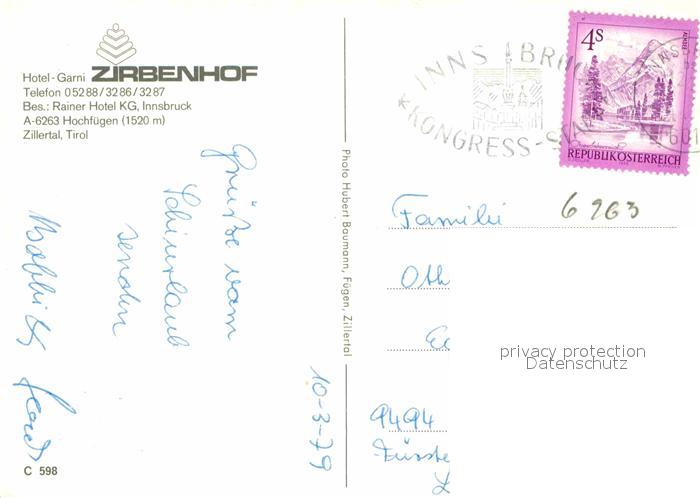 Hotel-Garni ZIRBENHOF
Telefon 05288/3286/3287
Bes.: Rainer Hotel KG, Innsbruck
A-6263 Hochfügen (1520 m)
Zillertal, Tirol
Grüße vom
Schiurlaub
senden
C 598
10-3-79
Photo Hubert Baumann, Fügen, Zillertal
INNSBRUCK
KONGRESS-STADT
4S
REPUBLIK ÖSTERREICH
6263
Familie
Oth
9494
privacy protection
Datenschutz